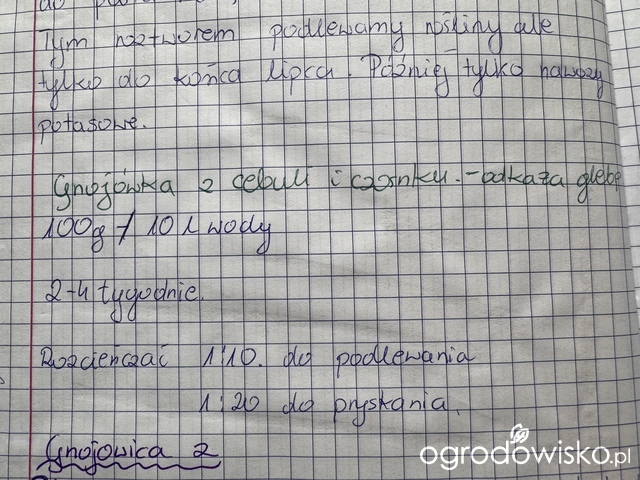 Tym roztworem podlewamy rośliny ale
tylko do końca lipca. Później tylko nawozy
potasowe.
Gnojówka z cebuli i czosnku. - odkaża glebę
100g / 10 l wody
2-4 tygodnie.
Rozcieńczać 1:10. do podlewania
1:20 do pryskania.
Gnojowica z
ogrodowisko.pl